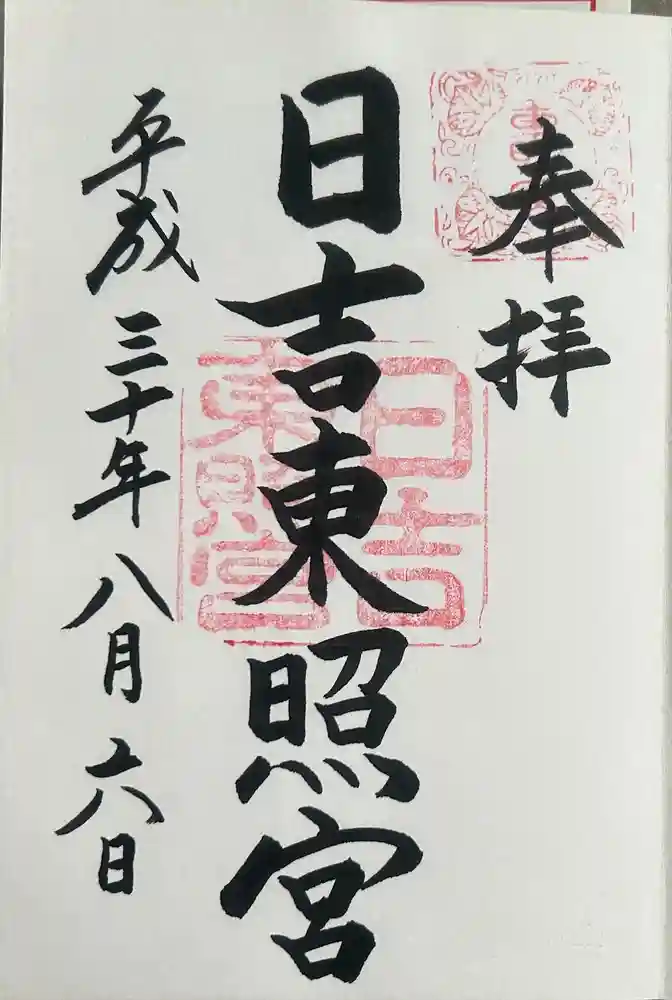 奉拝
日吉東照宮
日吉
東照宮
平成三十年八月六日